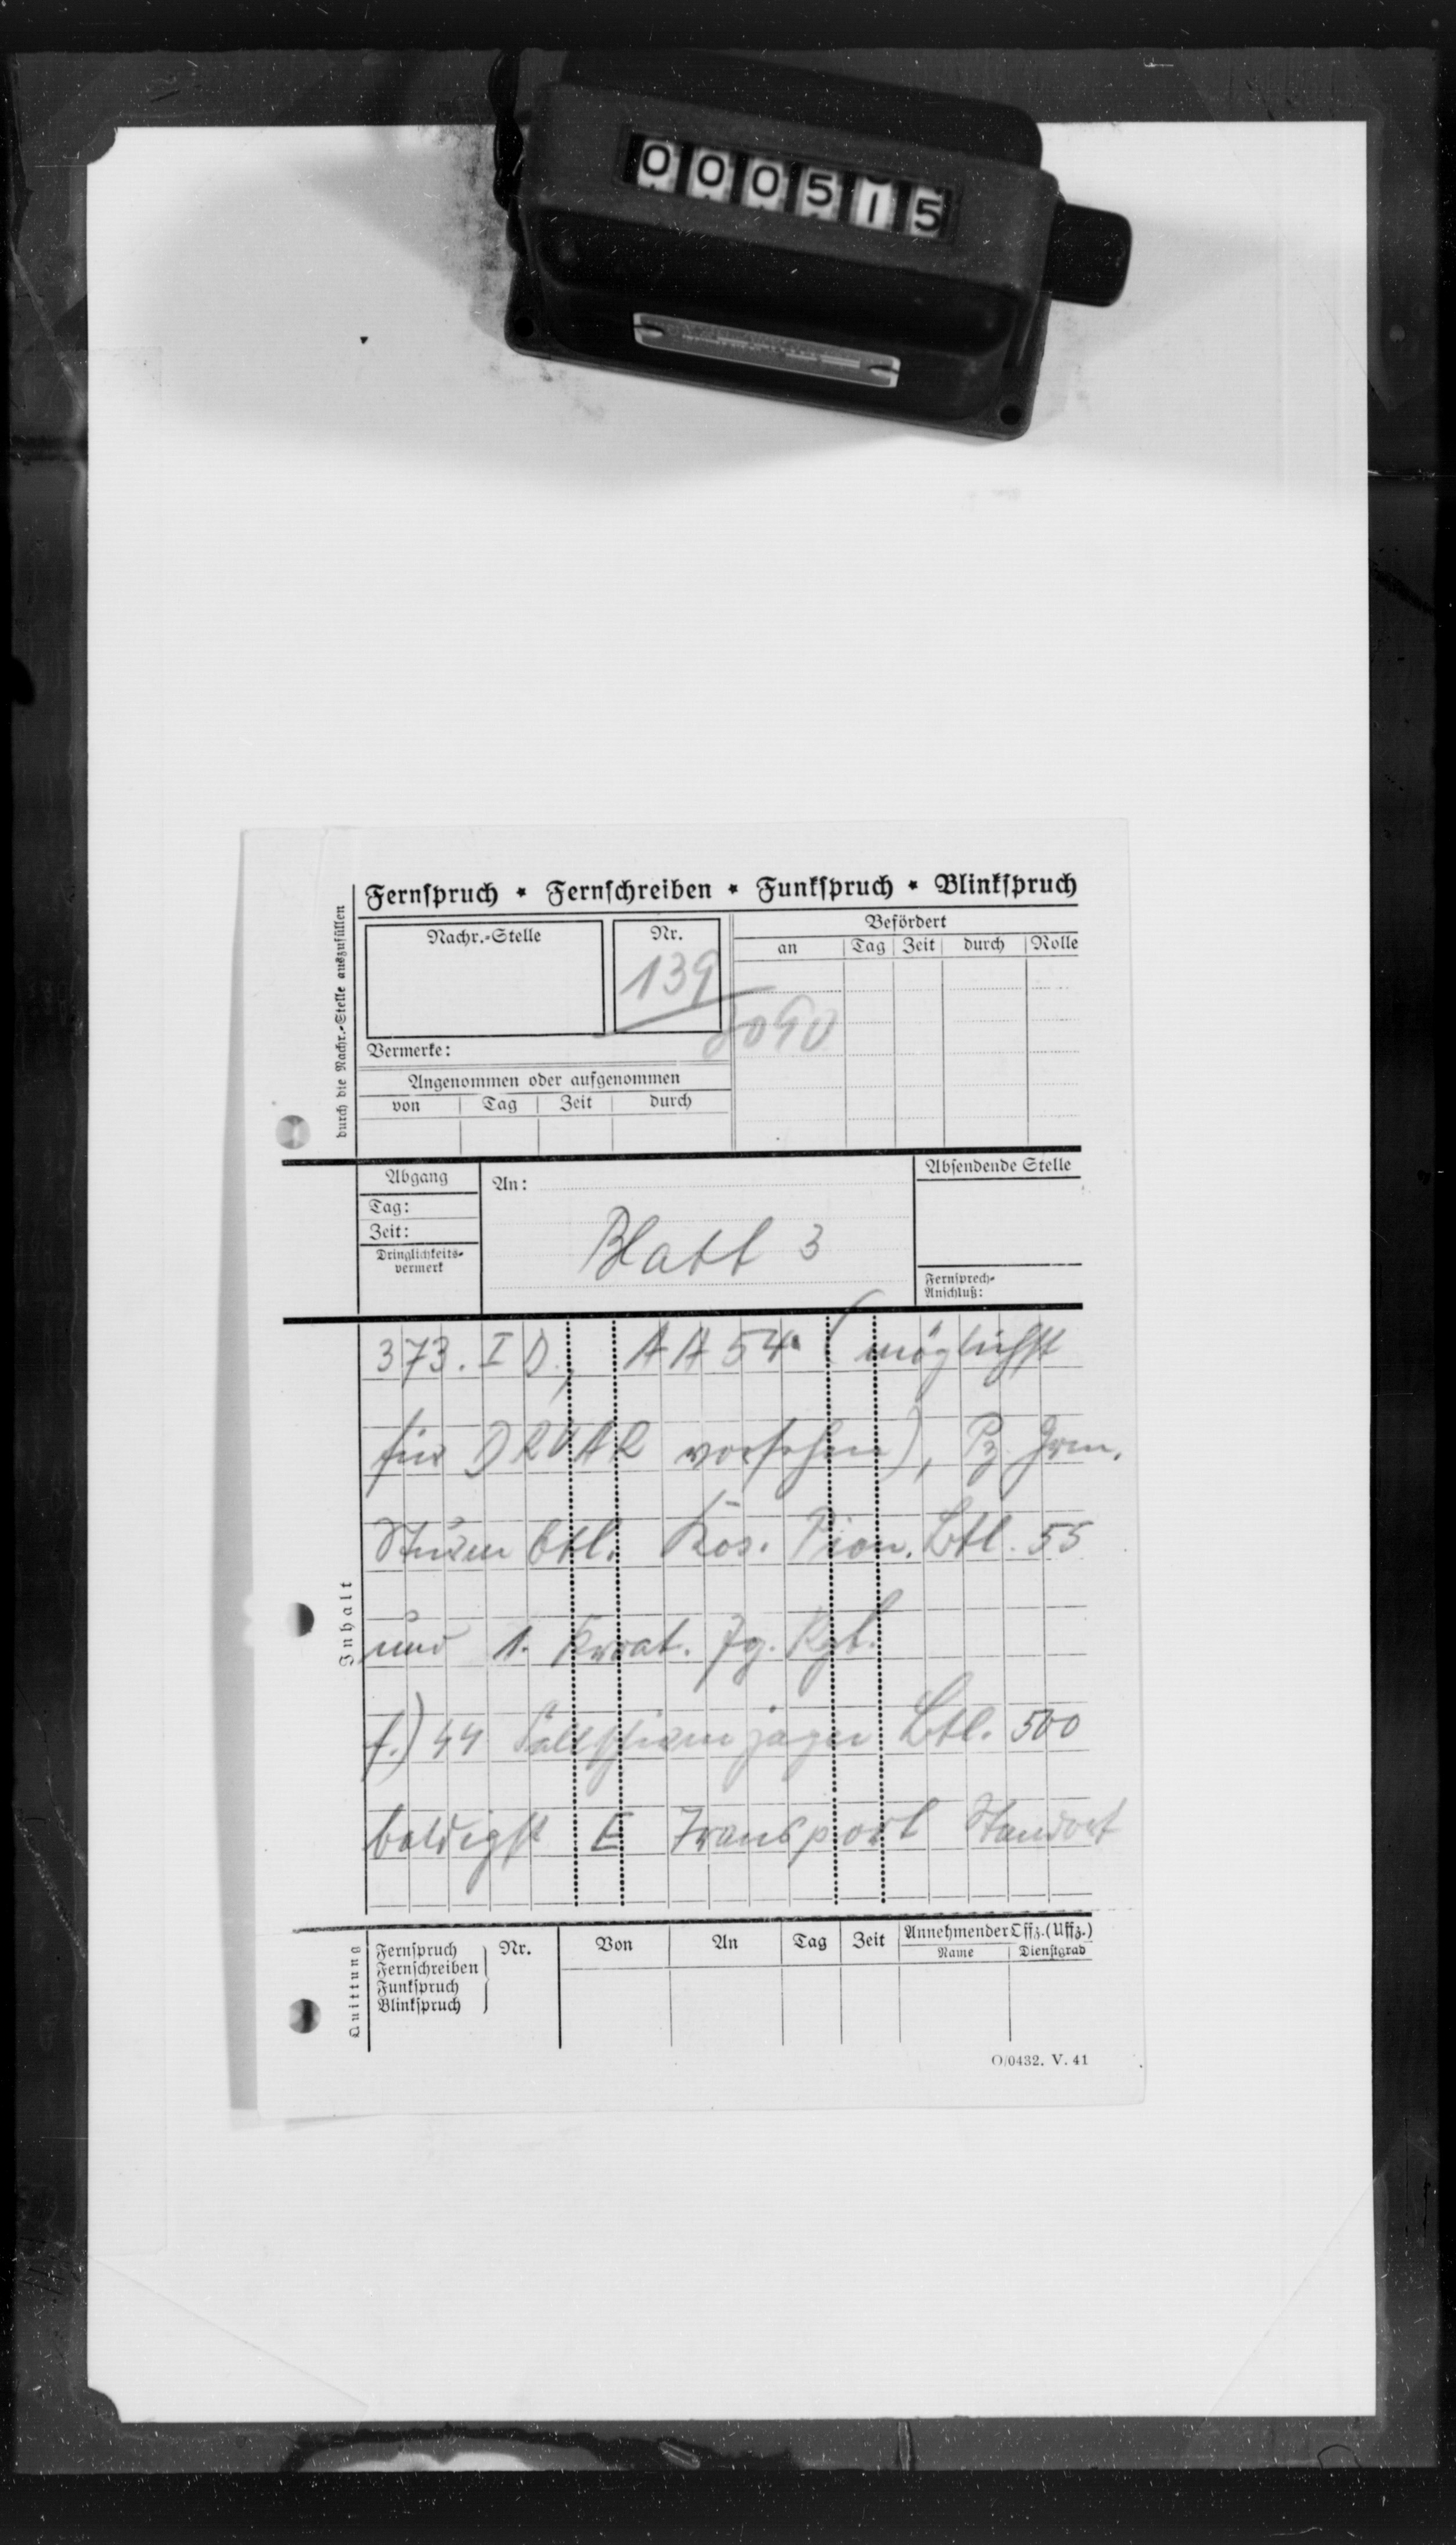 000515
Fernspruch * Fernschreiben * Funkspruch * Blinkspruch
durch die Nachr.-Stelle auszufüllen
Nachr.-Stelle
Nr.
139
Befördert
an Tag Zeit durch Rolle
Vermerke:
Angenommen oder aufgenommen
von Tag Zeit durch
Abgang
Tag:
Zeit:
Dringlichkeits-
vermerk
An:
Blatt 3
Absendende Stelle
Fernsprech-
Anschluß:
Inhalt
373. I D., A A 54. (möglichst
für DRVAR vorsehen), Pz. Gren.
Sturm Btl. Kos. Pion. Btl. 55
und 1. Kroat. Jg. Rgt.
f.) 44 Fallschirmjäger Btl. 500
baldigst E Transport Standort
Quittung
Fernspruch
Fernschreiben
Funkspruch
Blinkspruch
Nr. Von An Tag Zeit
Annehmender Offz. (Uffz.)
Name Dienstgrad
O/0432. V. 41